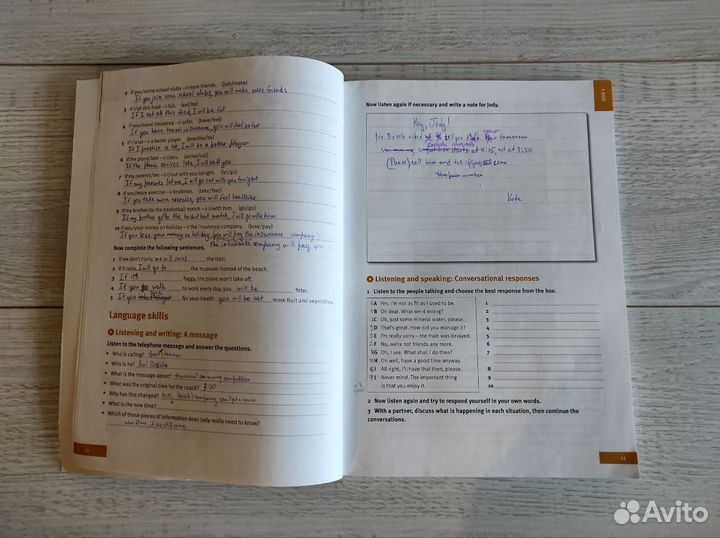 2 If you/some school clubs → more friends. (join/make)
If you join some school clubs, you will make more friends
3 If I/all this food → I full. (eat/be)
If I eat all this food, I will be full
4 If you/travel insurance → safer. (have/feel)
If you have travel insurance, you will feel safer
5 If I/a lot → a better player. (practise/be)
If I practise a lot, I will be a better player
6 If the plane/late → I/you. (arrive/call)
If the plane arrives late, I will call you
7 If my parents/me → I/out with you tonight. (let/go)
If my parents let me, I will go out with you tonight
8 If you/more exercise → healthier. (take/feel)
If you take more exercise, you will feel healthier
9 If my brother/to the basketball match → I/with him. (go/go)
If my brother goes to the basketball match, I will go with him
10 If you/your money on holiday → the insurance company. (lose/pay)
If you lose your money on holiday, you will pay the insurance company
the insurance company will pay you
Now complete the following sentences.
1 If we don't hurry, we will miss the train.
2 If it rains, I will go to the museum instead of the beach.
3 If it foggy, the plane won't take off.
4 If you walk to work every day, you will be fitter.
5 If you for your health, you will be eat more fruit and vegetables.
Language skills
Listening and writing: A message
Listen to the telephone message and answer the questions.
• Who is calling?
• Who is he?
• What is the message about? tomorrow swimming competition
• What was the original time for the coach?
• Why has this changed?
• What is the new time?
• Which of these pieces of information does Jody really need to know?
new time
Unit 1
Now listen again if necessary and write a note for Jody.
Hey, Jody!
you that tomorrow
starts at 4:15, not at 3:30
(Please) call him and
Kate
Listening and speaking: Conversational responses
1 Listen to the people talking and choose the best response from the box.
A Yes. I'm not as fit as I used to be.
B Oh dear. What went wrong?
C Oh, just some mineral water, please.
D That's great. How did you manage it?
E I'm really sorry – the train was delayed.
F No, we're not friends any more.
G Oh, I see. What shall I do then?
H Oh well, have a good time anyway.
I All right, I'll have that then, please.
J Never mind. The important thing
is that you enjoy it.
1
2
3
4
5
6
7
8
9
10
2 Now listen again and try to respond yourself in your own words.
3 With a partner, discuss what is happening in each situation, then continue the
conversations.
Avito